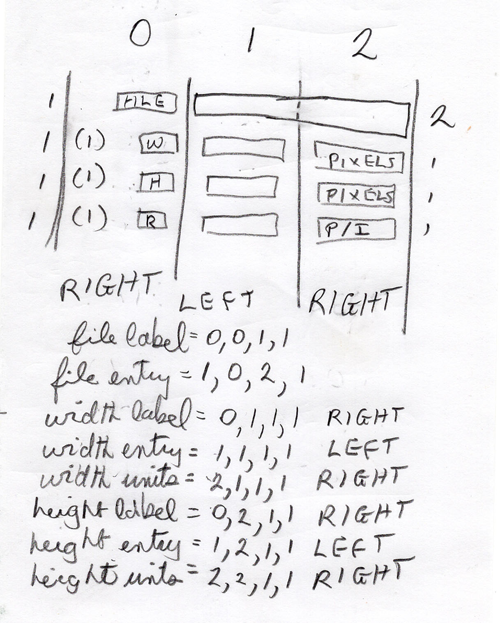 0 1 2
1 FILE 2
1 (1) W PIXELS 1
1 (1) H PIXELS 1
1 (1) R P/I 1
RIGHT LEFT RIGHT
file label = 0,0,1,1
file entry = 1,0,2,1
width label = 0,1,1,1 RIGHT
width entry = 1,1,1,1 LEFT
width units = 2,1,1,1 RIGHT
height label = 0,2,1,1 RIGHT
height entry = 1,2,1,1 LEFT
height units = 2,2,1,1 RIGHT